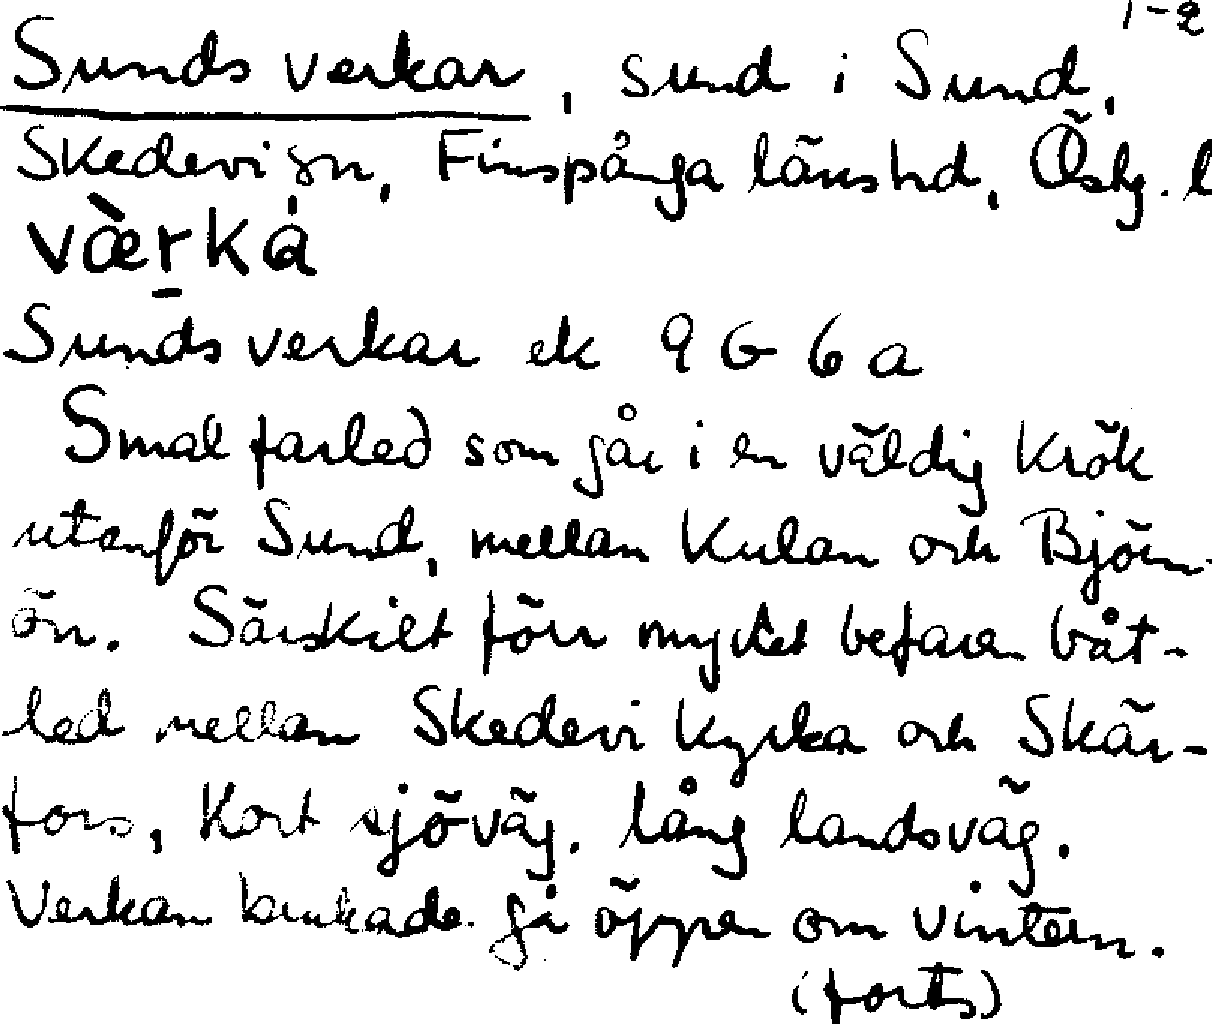 1-2
Sunds verkar, sund i Sund,
Skedevi sn, Finspånga länshd, Östg. l
vὰrka
Sunds verkar ek 9 G 6 a
Smal farled som går i en väldig krök
utanför Sund, mellan Kulan och Björn-
ön. Särskilt förr mycket befaren båt-
led mellan Skedevi kyrka och Skär-
fors, Kort sjöväg. lång landsväg.
Verkan brukade gå öppen om vintern.
(forts)